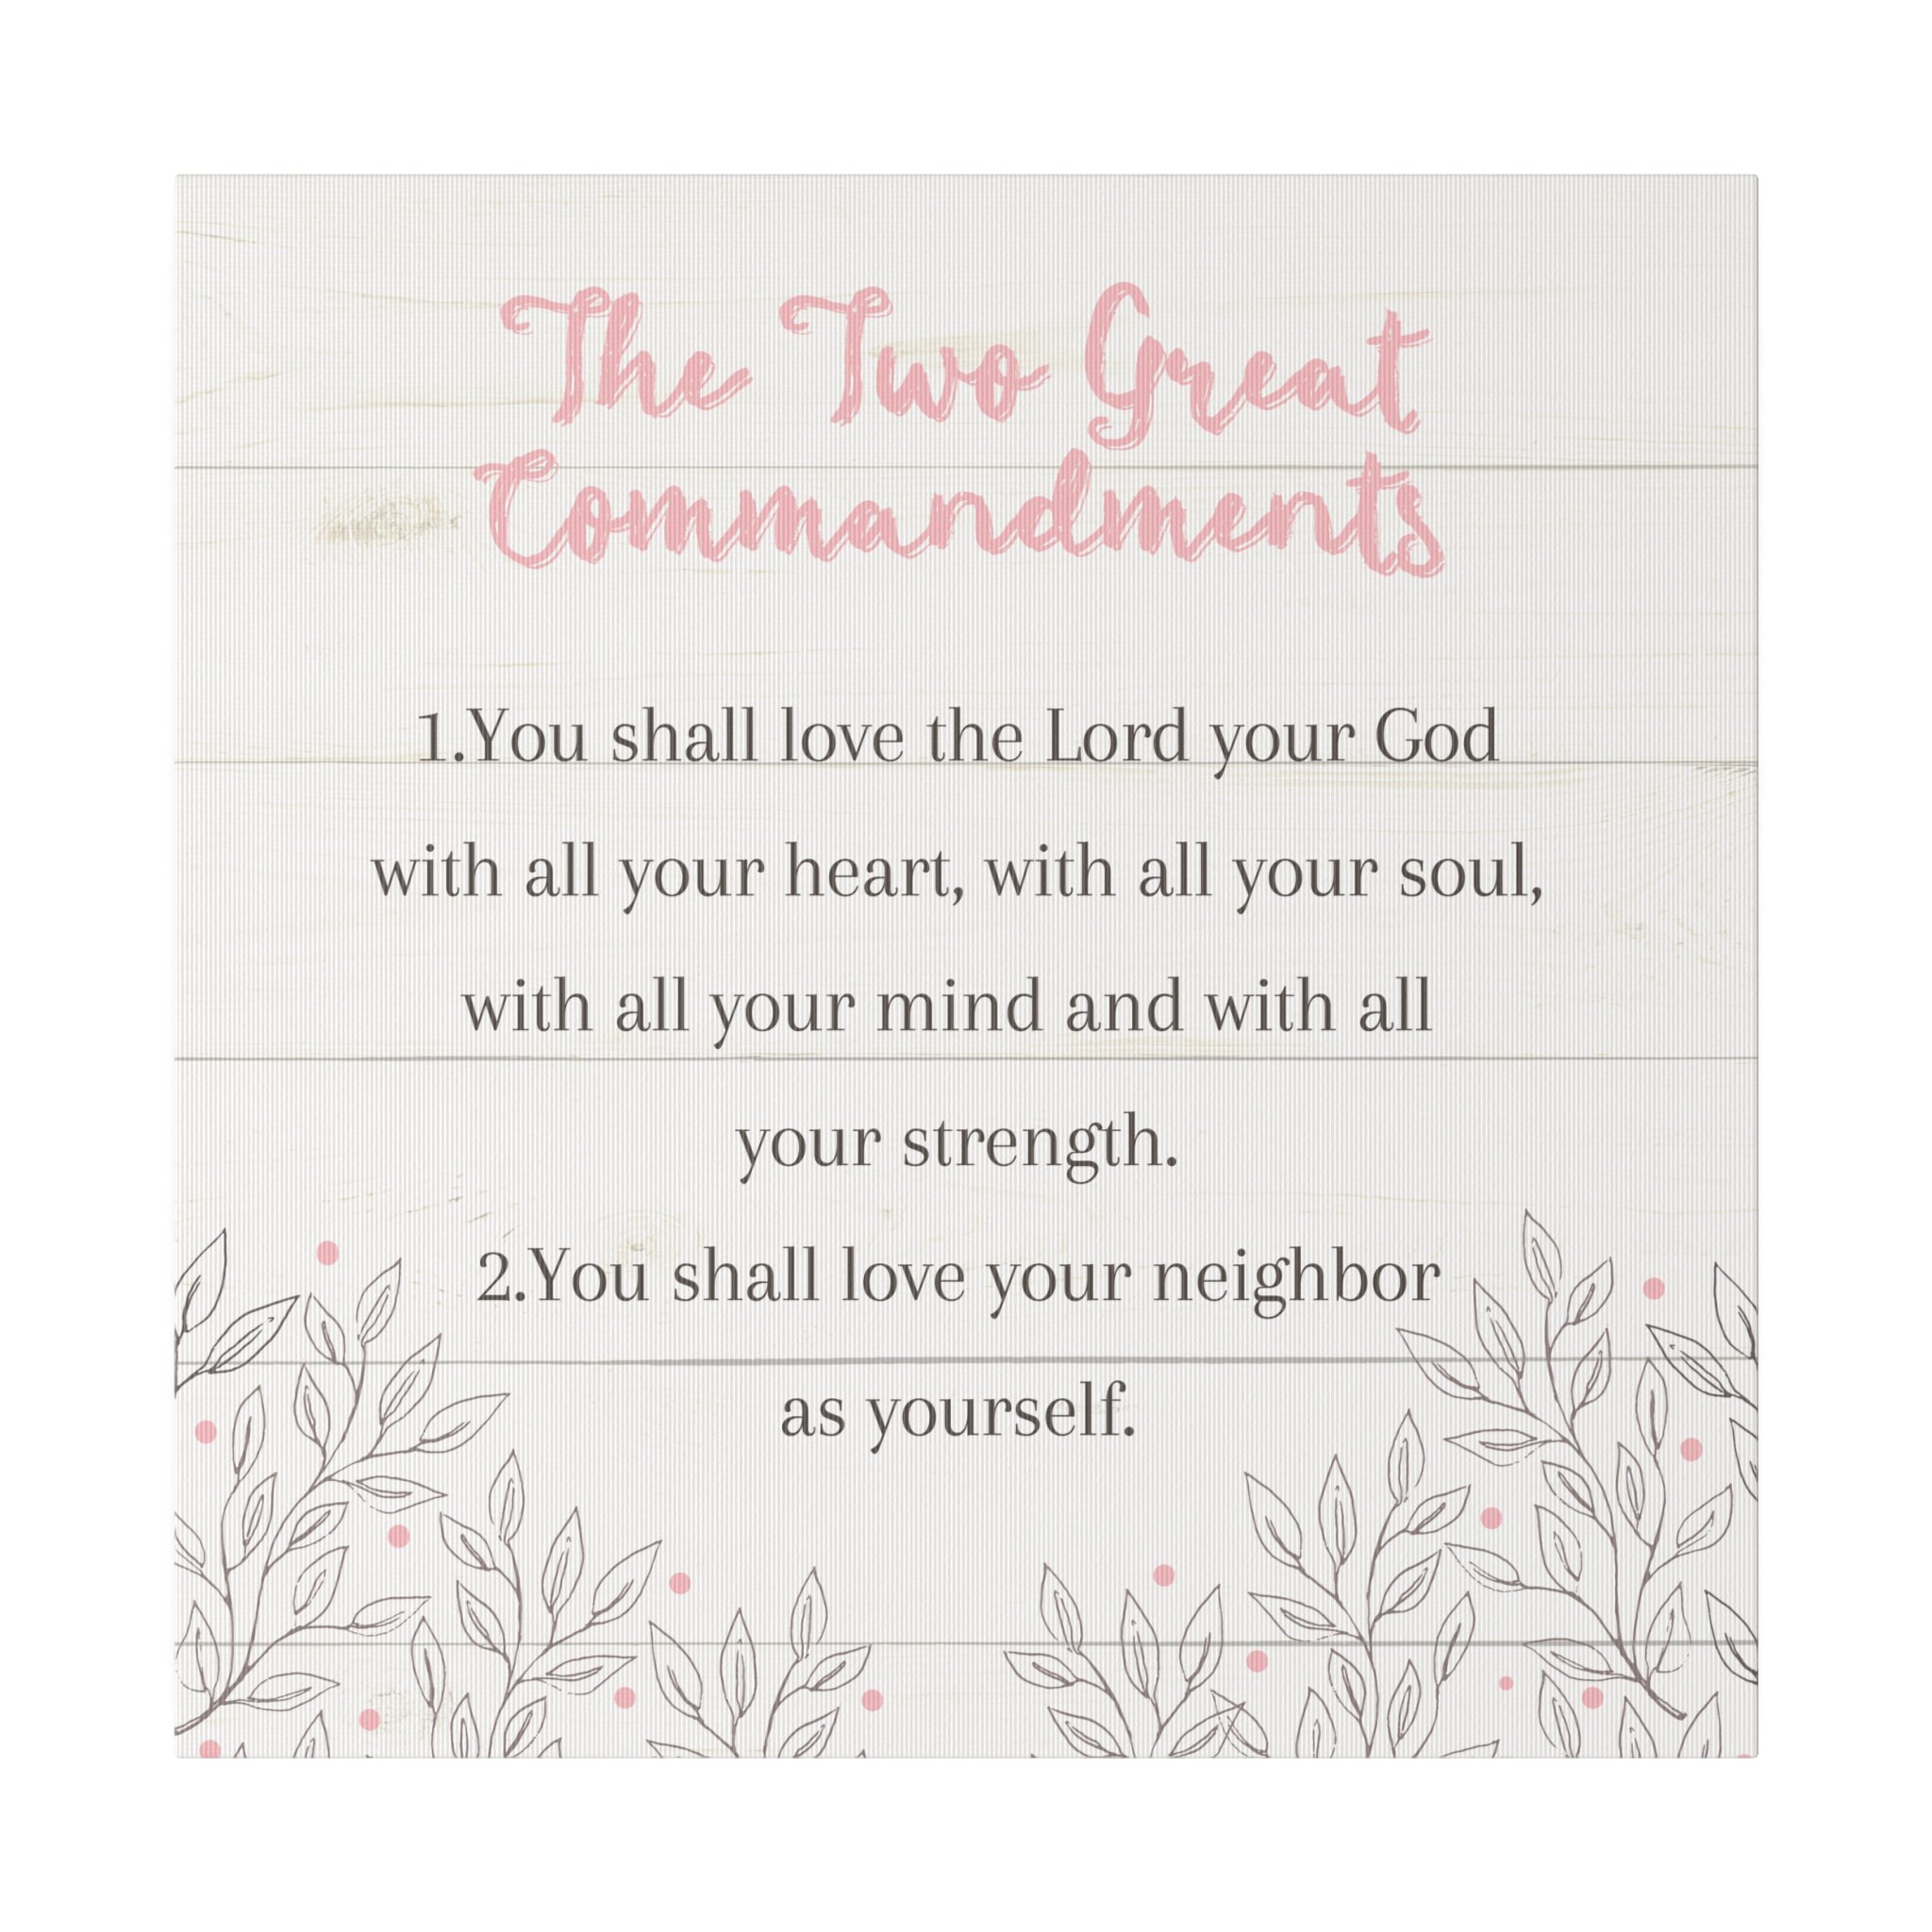 The Two Great
Commandments
1.You shall love the Lord your God
with all your heart, with all your soul,
with all your mind and with all
your strength.
2.You shall love your neighbor
as yourself.